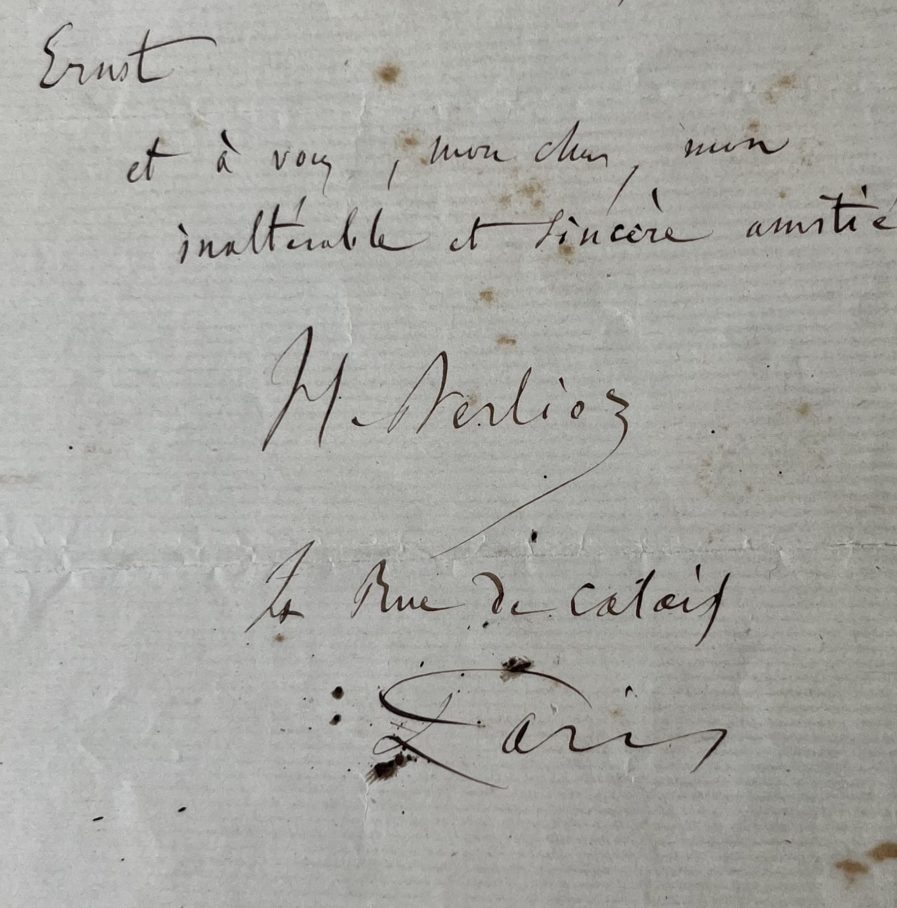 Ernst
et à vous, mon cher, mon
inaltérable et sincère amitié
H. Berlioz
4 Rue de Calais
Paris